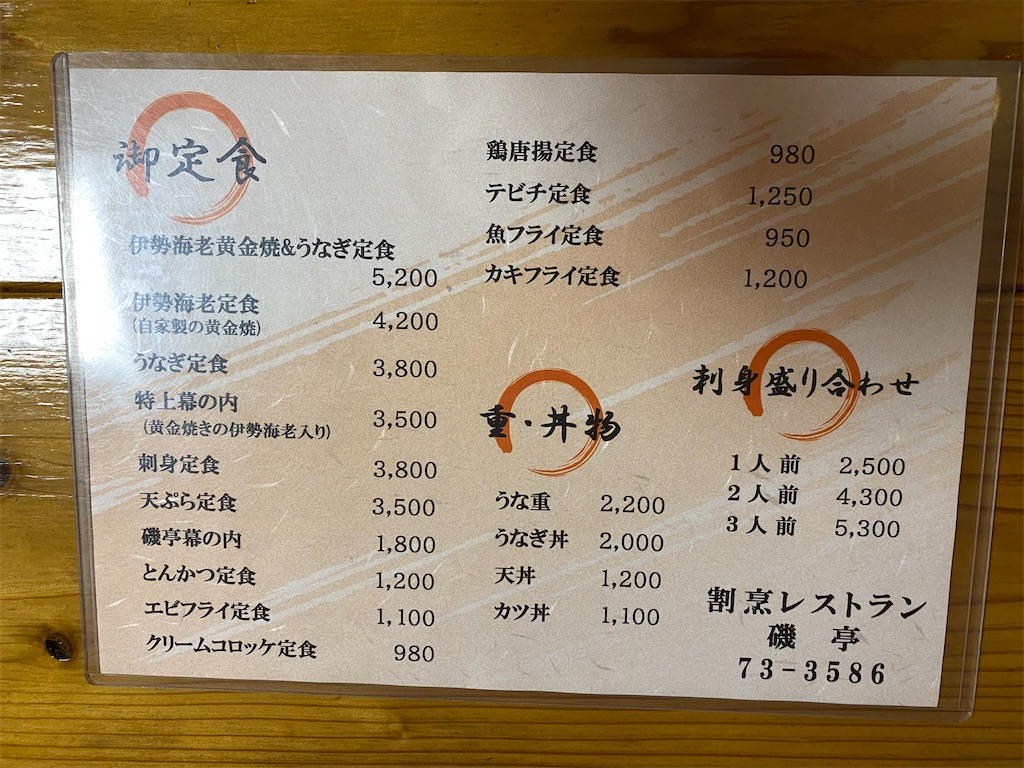 御定食
伊勢海老黄金焼&うなぎ定食
5,200
伊勢海老定食
(自家製の黄金焼) 4,200
うなぎ定食 3,800
特上幕の内
(黄金焼きの伊勢海老入り) 3,500
刺身定食 3,800
天ぷら定食 3,500
磯亭幕の内 1,800
とんかつ定食 1,200
エビフライ定食 1,100
クリームコロッケ定食 980
鶏唐揚定食 980
テビチ定食 1,250
魚フライ定食 950
カキフライ定食 1,200
重・丼物
うな重 2,200
うなぎ丼 2,000
天丼 1,200
カツ丼 1,100
刺身盛り合わせ
1人前 2,500
2人前 4,300
3人前 5,300
割烹レストラン
磯亭
73-3586